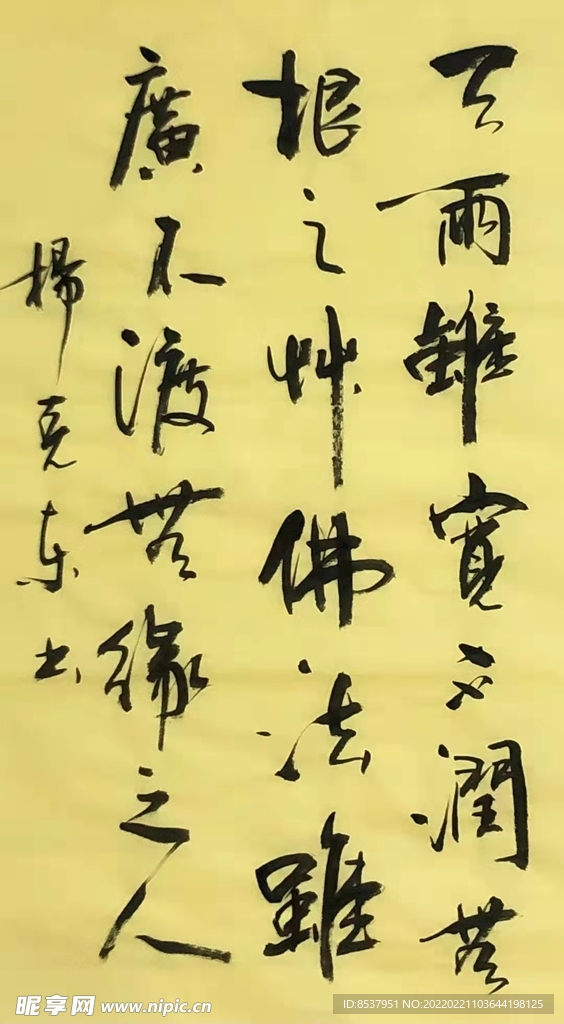 天雨雖寬不潤無
根之草佛法雖
廣不渡無緣之人
楊克東书
昵享网 www.nipic.cn
ID:8537951 NO:20220221103644198125